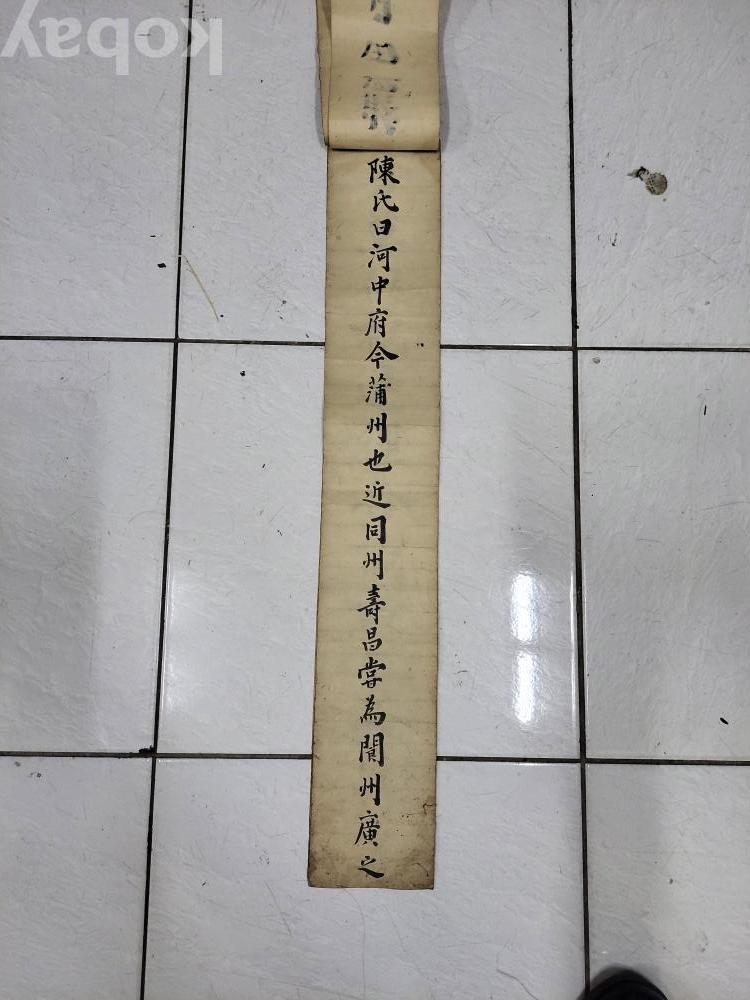 kobay
陳氏曰河中府今蒲州也近同州壽昌嘗為閬州廣之